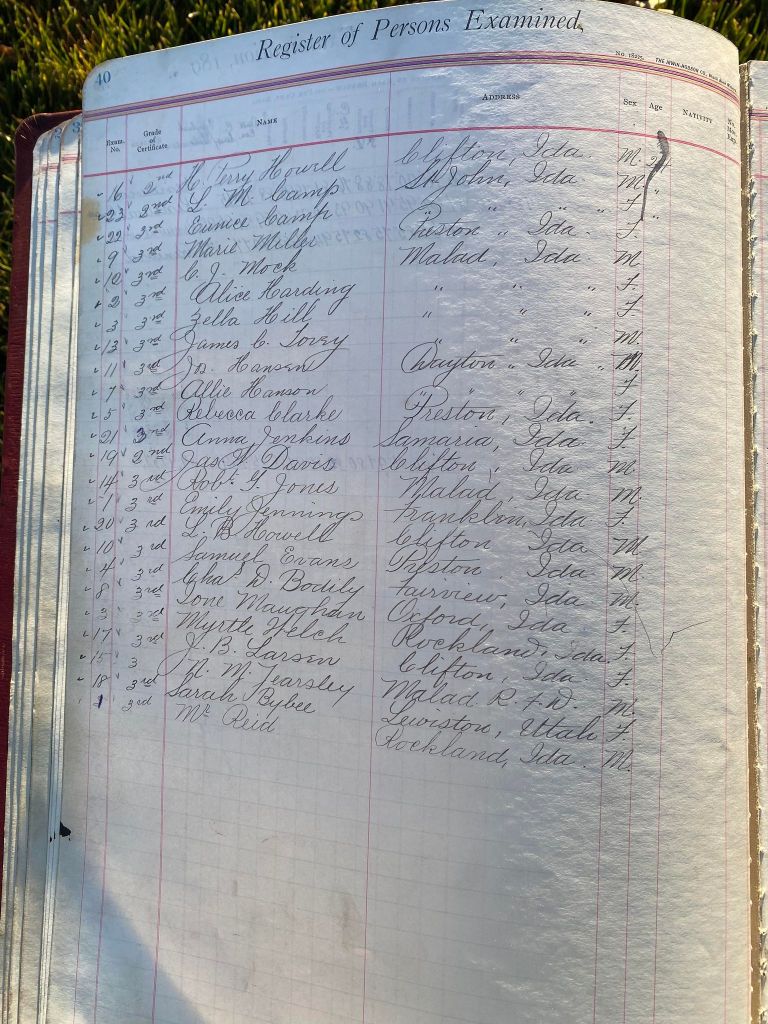 40
Register of Persons Examined.
No. 18075. THE IRWIN-HODSON CO.
Exam. No. Grade of Certificate NAME ADDRESS Sex Age NATIVITY
16 2nd H. Terry Howell Clifton, Ida. M.
23 2nd L. M. Camp St John, Ida M
22 3rd Eunice Camp " " " F
9 3rd Marie Miller Preston " Ida. F.
12 3rd C. J. Mock Malad, Ida M
2 3rd Alice Harding " " " F.
3 3rd Zella Hill " " " F.
13 3rd James C. Tovey " " " M.
11 3rd Jos. Hansen Dayton " Ida " M.
7 3rd Allie Hanson " " " F
5 3rd Rebecca Clarke Preston, Ida. F.
21 3nd Anna Jenkins Samaria, Ida F.
19 2nd Jas W Davis Clifton, Ida M
14 3rd Robt. G. Jones Malad, Ida. M.
1 3rd Emily Jennings Franklin, Ida F.
20 3rd L B Howell Clifton Ida M
10 3rd Samuel Evans Preston. Ida M
4 3rd Chas. D. Bodily Fairview, Ida M.
8 3rd Ione Maughan Oxford, Ida F.
3 3rd Myrtle Welch Rockland, Ida. F.
17 3rd J. B. Larsen Clifton, Ida F.
15 3 N. M. Tearsley Malad R. F. D. M.
18 3rd Sarah Bybee Lewiston, Utah F.
1 3rd Mr. Reid Rockland, Ida. M.